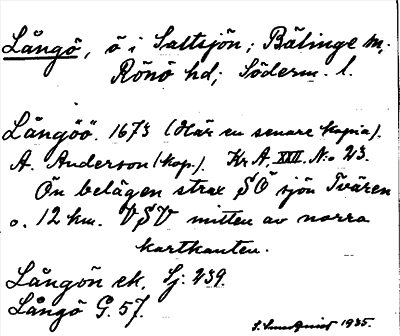 Långö, ö i Saltsjön; Bälinge sn,
Rönö hd; Söderm. l.
Långöö. 1673 (Här en senare kopia).
A. Anderson (kop.). Kr A, XXII. No 23.
Ön belägen strax SÖ sjön Tvären
o. 12 km. VSV mitten av norra
kartkanten.
Långön ek. Sj: 239.
Långö G. 57.
1935.